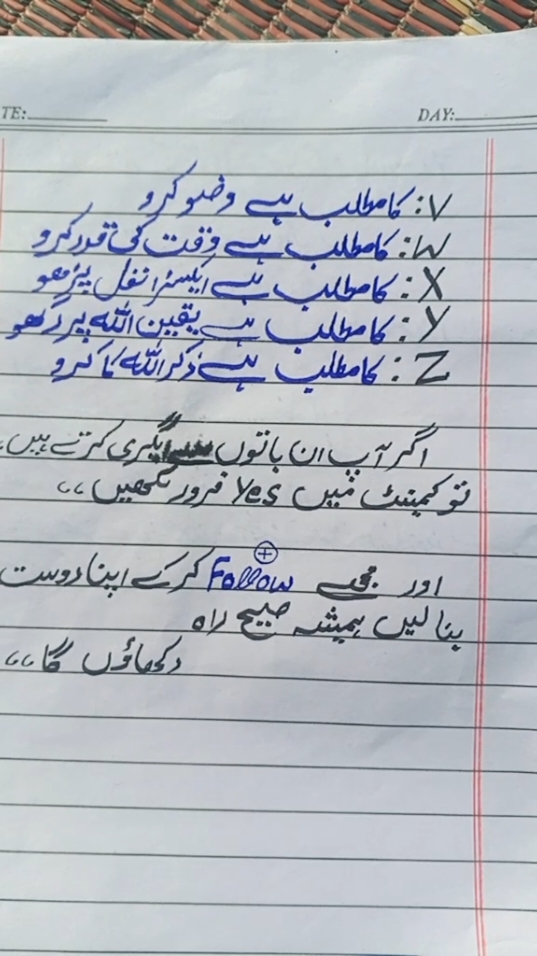 TE:________ DAY:________
V: کا مطلب ہے وضو کرو
W: کا مطلب ہے وقت کی قدر کرو
X: کا مطلب ہے ایکسٹرا نفل پڑھو
Y: کا مطلب ہے یقین اللہ پر رکھو
Z: کا مطلب ہے ذکر اللہ کا کرو
اگر آپ ان باتوں ایگری کرتے ہیں،
تو کمینٹ میں Yes ضرور لکھیں ،،
اور مجھے Follow کر کے اپنا دوست
بنا لیں ہمیشہ صحیح راہ
دکھاؤں گا ،،